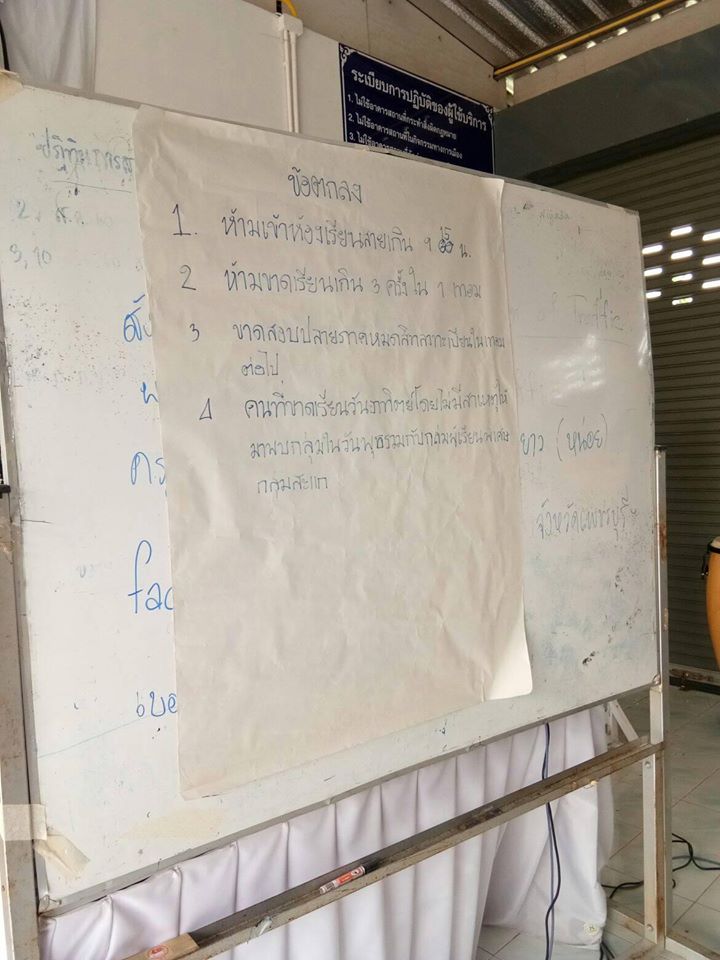 ระเบียบการปฏิบัติของผู้ใช้บริการ
1. ไม่ใช้อาคารสถานที่กระทำสิ่งผิดกฎหมาย
2. ไม่ใช้อาคารสถานที่ในกิจกรรมทางการเมือง
3. ไม่ใช้อาคาร
ข้อตกลง
1. ห้ามเข้าห้องเรียนสายเกิน 9 15 น.
2 ห้ามขาดเรียนเกิน 3 ครั้งใน 1 เทอม
3 ขาดสอบปลายภาคหมดสิทลงทะเบียนในเทอม
ต่อไป
4 คนที่ขาดเรียนวันอาทิตย์โดยไม่มีสาเหตุให้
มาพบกลุ่มในวันพุธรวมกับกลุ่มผู้เรียนพิเศษ
กลุ่มสะแก
ปฏิทินการ
2 ส.ค. 60
3, 10
Traffic
ครู
ยาว (หน่อย)
จังหวัดเพชรบุรี
fac
เบอ